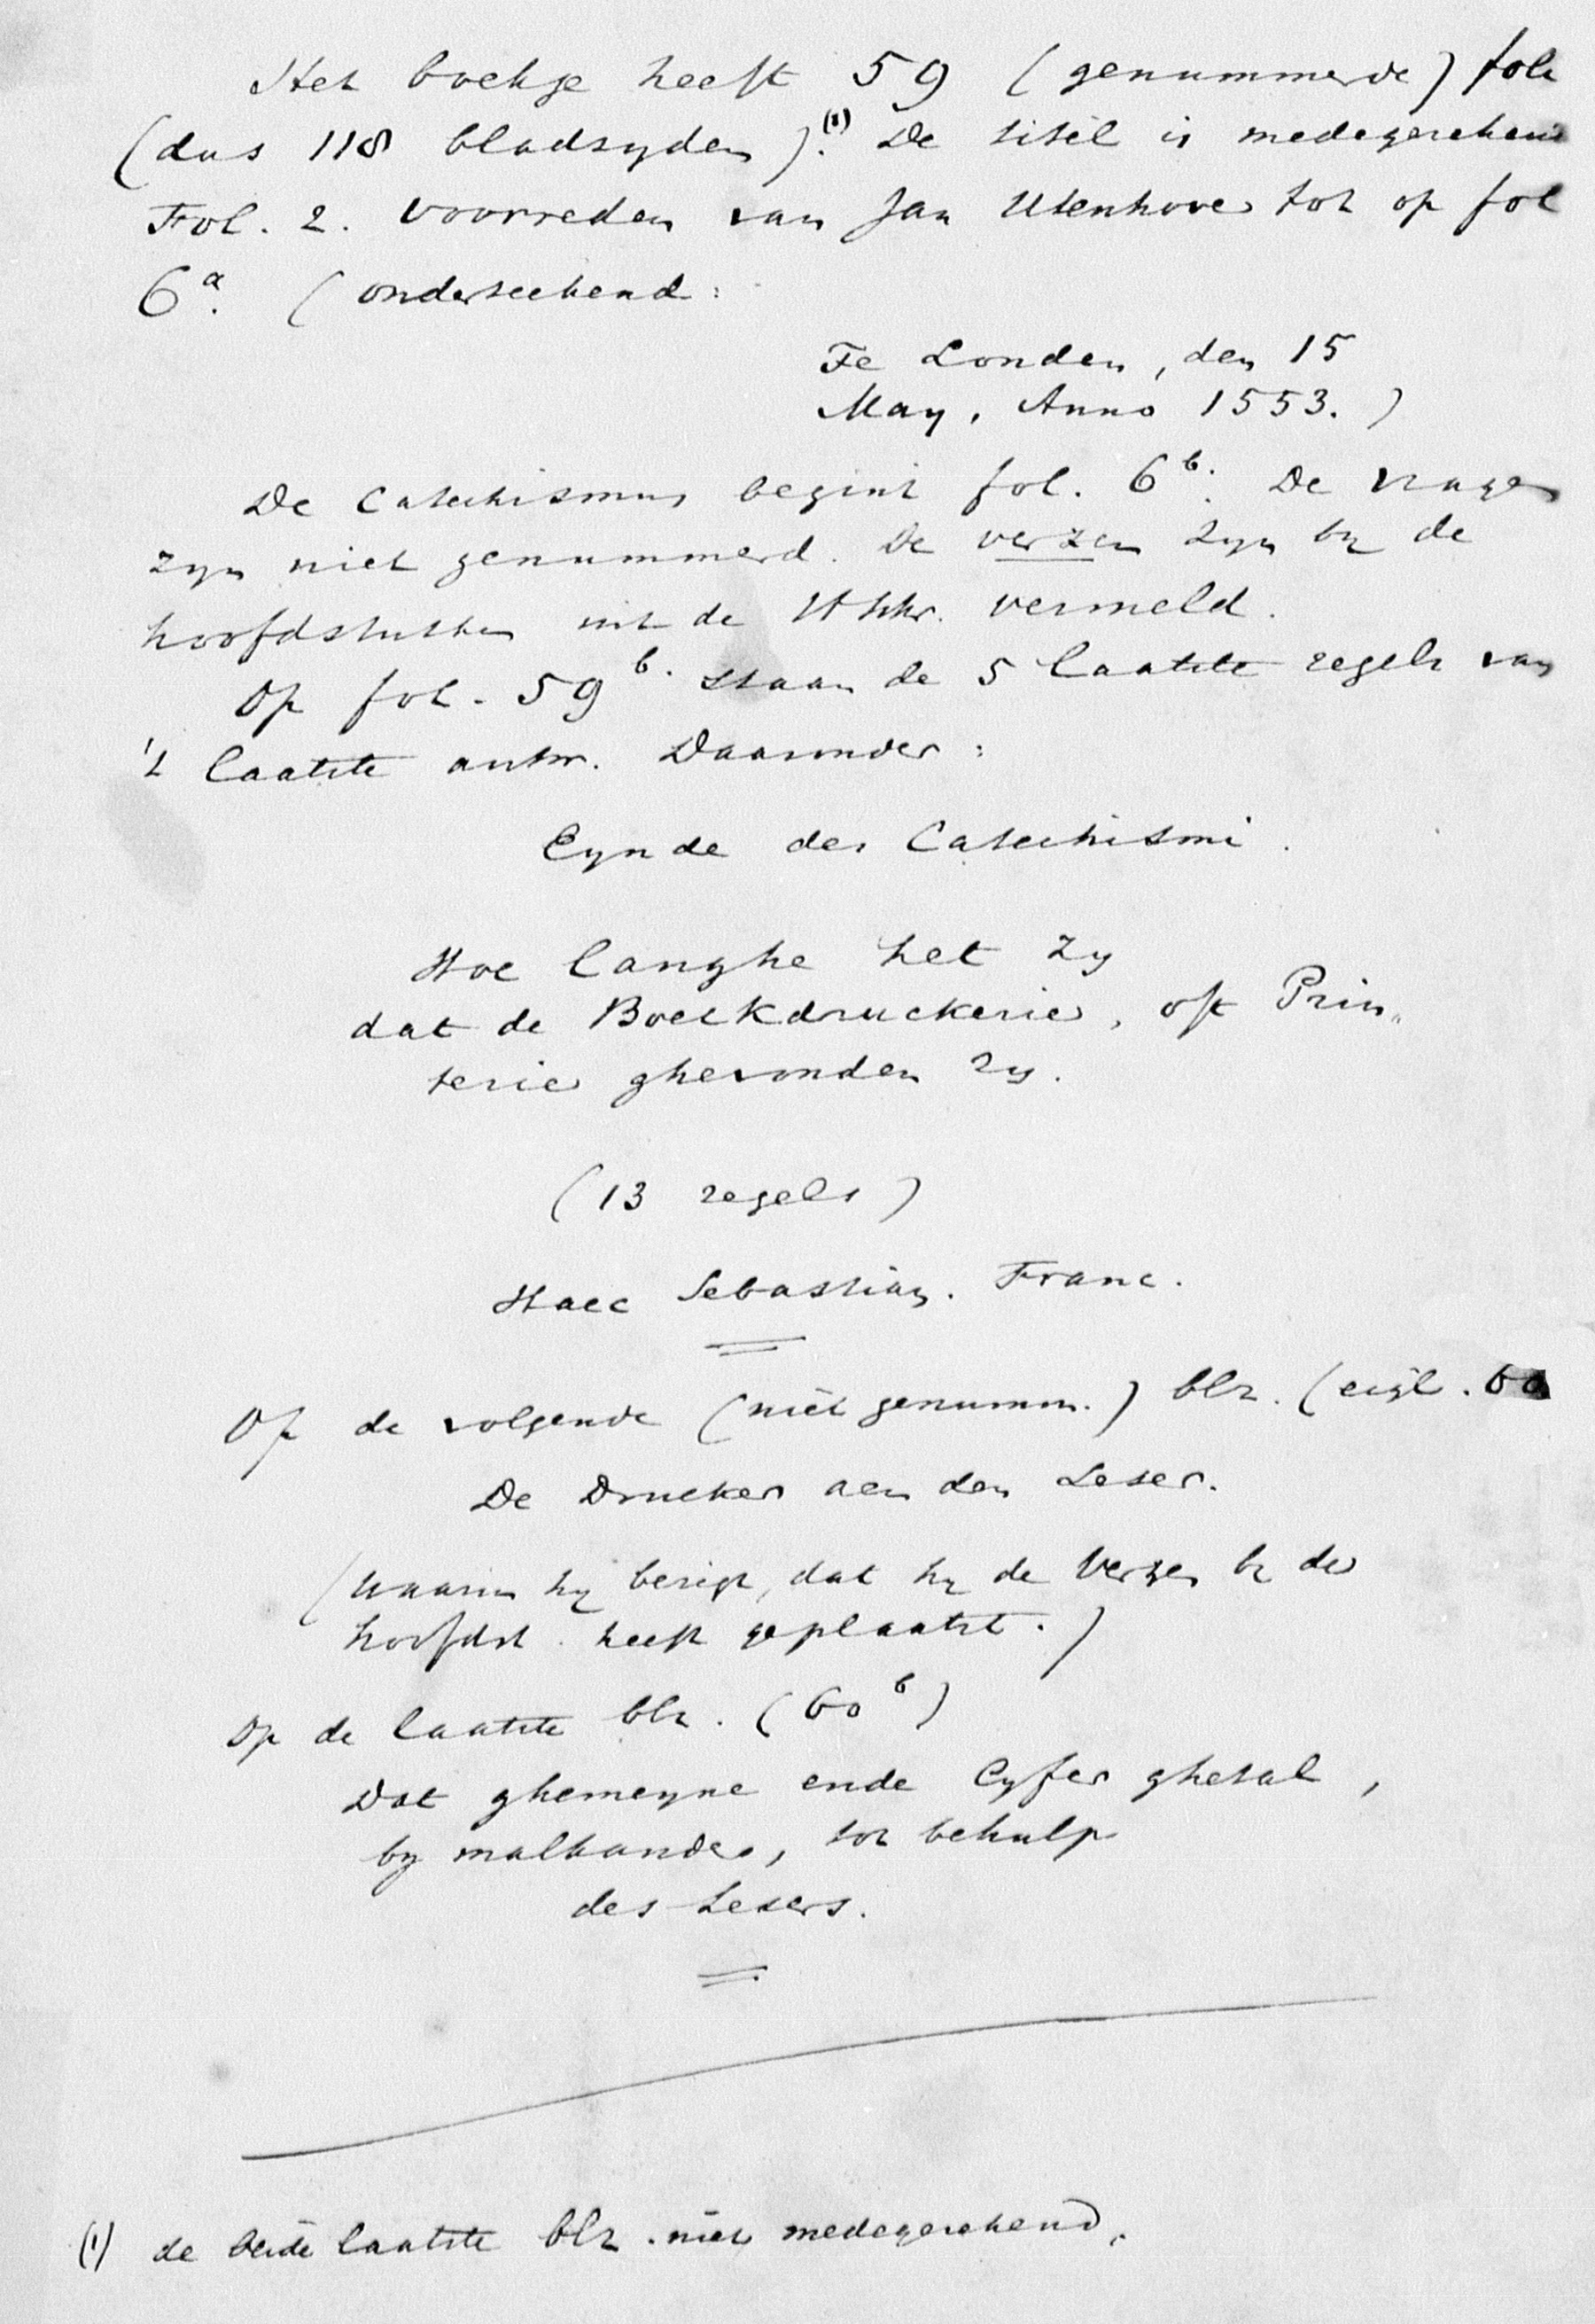 Het boekje heeft 59 (genummerde) fol.
(dus 118 bladzyden).(1) De titel is medegerekend
Fol. 2. Voorreden van Jan Utenhove tot op fol
6a. (onderteekend:
Te Londen, den 15
May, Anno 1553.)
De Catechismus begint fol. 6b. De vragen
zyn niet genummerd. De verzen zyn by de
hoofdstukken uit de H Schr. vermeld.
Op fol. 59b. staan de 5 laatste regels van
't laatste antw. Daaronder:
Eynde des Catechismi.
Hoe langhe het zy
dat de Boeckdruckerie, oft Prin„
terie ghevonden zy.
(13 regels)
Haec Sebastian. Franc.
Op de volgende (niet genumm.) blz. (eigl. 60
De Drucker aen den Leser.
(Waarin hy berigt, dat hy de Verzen by de
hoofdst. heeft geplaatst.)
Op de laatste blz. (60b)
Dat ghemeyne ende Cyfer ghetal,
by malkander, tot behulp
des Lesers.
(1) de beide laatste blz. niet medegerekend.